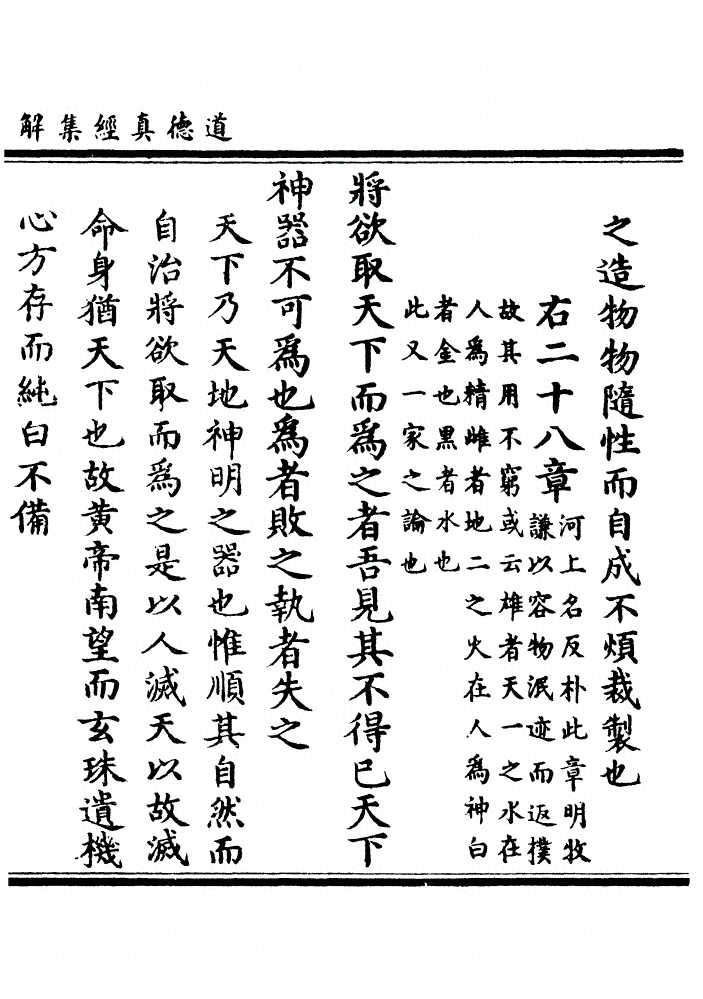 道德真經集解
之造物物隨性而自成不煩裁製也
右二十八章河上名反朴此章明牧
謙以容物泯迹而返樸
故其用不窮或云雄者天一之水在
人爲精雌者地二之火在人爲神白
者金也黑者水也
此又一家之論也
將欲取天下而爲之者吾見其不得已天下
神器不可爲也爲者敗之執者失之
天下乃天地神明之器也惟順其自然而
自治將欲取而爲之是以人滅天以故滅
命身猶天下也故黄帝南望而玄珠遺機
心方存而純白不備